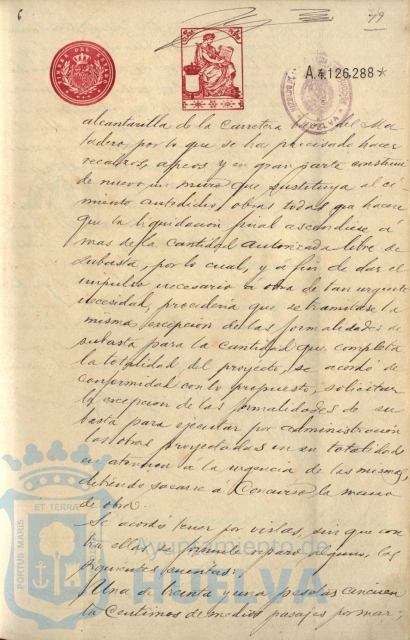 6
79
A.4.126.288*
alcantarilla de la Carretera del Ma-
tadero, por lo que se ha precisado hacer
recalzos, apeos y en gran parte construir
de nuevo un muro que sustituya al ci-
miento antedicho, obras todas que hacen
que la liquidación final ascendiese á
mas de la cantidad autorizada libre de
subasta, por lo cual, y á fin de dar el
impulso necesario a obra de tan urgente
necesidad, procedería que se tramitase la
misma excepción de las formalidades de
subasta para la cantidad que completa
la totalidad del proyecto, se acordó de
conformidad con lo propuesto, solicitar
la excepcion de las formalidades de su-
basta para ejecutar por administración
las obras proyectadas en su totalidad
en atencion a la urgencia de las mismas,
debiendo sacarse á Concurso la mano
de obra.
Se acordó tener por vistas, sin que con-
tra ellas se formule reparo alguno, las
siguientes cuentas:
Una de treinta y una pesetas cincuen-
ta centimos de medios pasajes por mar;
ET TERRA
PORTUS MARIS
Ayuntamiento de
HUELVA